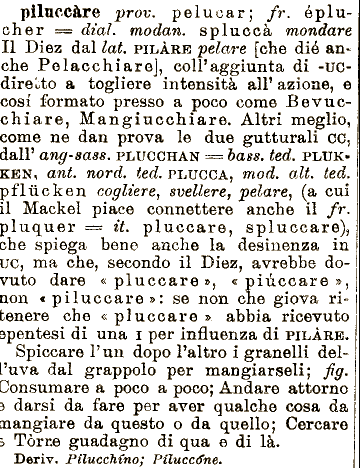 piluccàre prov. pelucar; fr. éplu-
cher = dial. modan. spluccà mondare
Il Diez dal lat. PILÀRE pelare [che diè an-
che Pelacchiare], coll'aggiunta di -UC-
diretto a togliere intensità all'azione, e
cosí formato presso a poco come Bevuc-
chiare, Mangiucchiare. Altri meglio,
come ne dan prova le due gutturali CC,
dall' ang-sass. PLUCCHAN = bass. ted. PLUK-
KEN, ant. nord. ted. PLUCCA, mod. alt. ted.
pflücken cogliere, svellere, pelare, (a cui
il Mackel piace connettere anche il fr.
pluquer = it. pluccare, spluccare),
che spiega bene anche la desinenza in
UC, ma che, secondo il Diez, avrebbe do-
vuto dare « pluccare », « piúccare »,
non « piluccare »: se non che giova ri-
tenere che « pluccare » abbia ricevuto
epentesi di una I per influenza di PILÀRE.
Spiccare l'un dopo l'altro i granelli del-
l'uva dal grappolo per mangiarseli; fig.
Consumare a poco a poco; Andare attorno
e darsi da fare per aver qualche cosa da
mangiare da questo o da quello; Cercare
e Tòrre guadagno di qua e di là.
Deriv. Pilucchíno; Piluccóne.